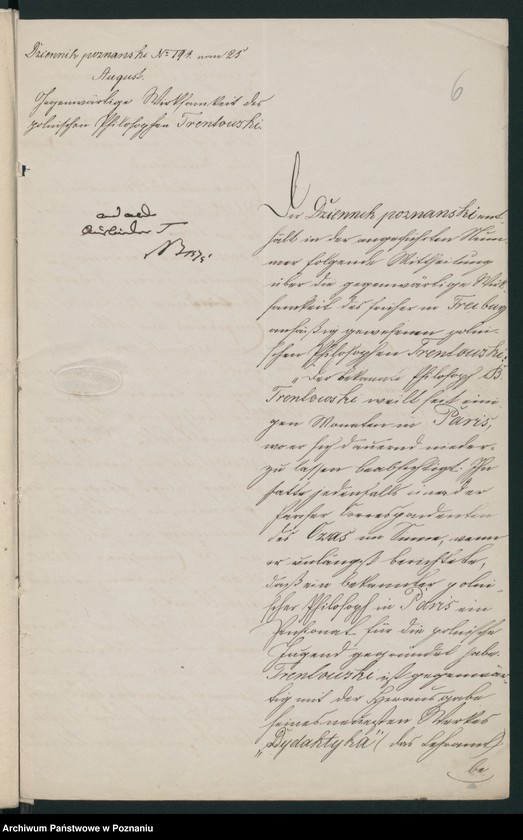 Dziennik poznanski No 194. vom 25
August.
Gegenwärtige Wirksamkeit des
polnischen Philosophen Trentowski.
6
Der Dziennik poznanski ent-
hält in der angeführten Num-
mer folgende Mittheilung
über die gegenwärtige Wirk-
samkeit des früher in Freiburg
ansäßig gewesenen polni-
schen Philosophen Trentowski:
"Der bekannte Philosoph B.
Trentowski weilt seit eini-
gen Monaten in Paris,
wo er sich dauernd nieder-
zu lassen beabsichtigt. Ihn
hatte jedenfalls einer der
Pariser Correspondenten
des Czas im Sinne, wenn
er unlängst berichtete,
daß ein bekannter polni-
scher Philosoph in Paris ein
Pensionat für die polnische
Jugend gegründet habe.
Trentowski ist gegenwär-
tig mit der Herausgabe
seines neuesten Werkes
"Dydaktyka" (das Lehramt)
be
Archiwum Państwowe w Poznaniu